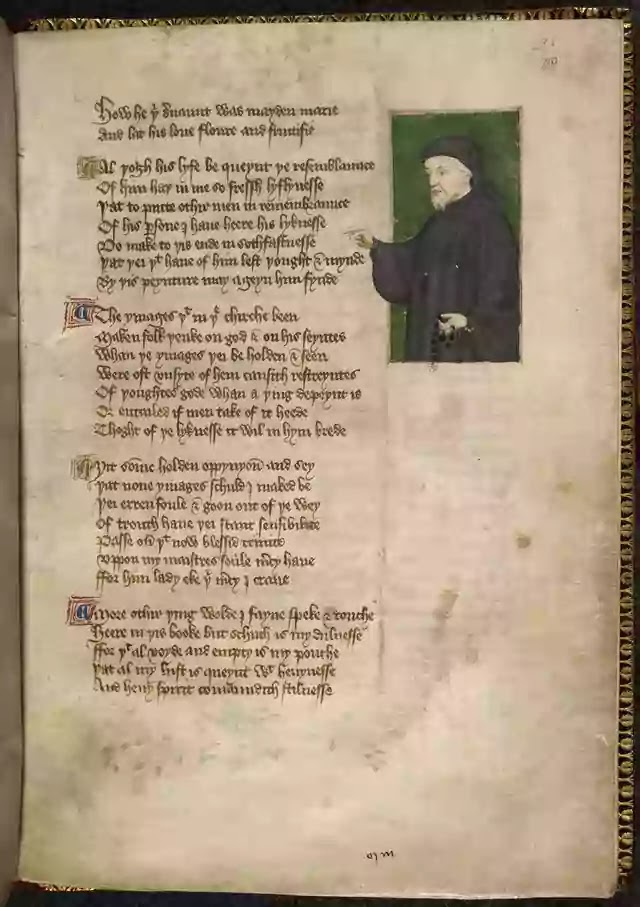 How he þͥ ẜuaunt was mayden marie
And lat his loue floure and fructifie
Al þogh his lyfe be queynt þe resemblaunce
Of him haþ in me so fressh lyflynesse
Þat to putte othir men in remembraunce
Of his ꝑsone I haue heere his lyknesse
Do make to þis ende in sothfastnesse
Þat þei þͭ haue of him left þought & mynde
By þis peynture may ageyn him fynde
The ymages þͭ in þͤ chirche been
Maken folk þenke on god & on his seyntes
Whan þe ymages þei be holden & seen
Were oft vnsyte of hem causith restreyntes
Of þoughtes gode whan a þing depeynt is
Or entailed if men take of it heede
Thoght of þe lyknesse it wil in hym brede
Yit som̄e holden oppynyoū and sey
Þat none ymages schuld I maked be
Þei erren foule & goon out of þe wey
Of trouth haue þei scant sensibilite
Passe ou̾ þͭ now blessid trinite
Vppon my maistres soule m̄cy haue
ffor him lady eke þͥ m̄cy I craue
More othir þing wolde I fayne speke & touche
Heere in þis booke but schuch is my dulnesse
ffor þͭ al voyde and empty is my pouche
Þat al my lust is queynt wͭ heuynesse
And heuy spirit comaundith stilnesse